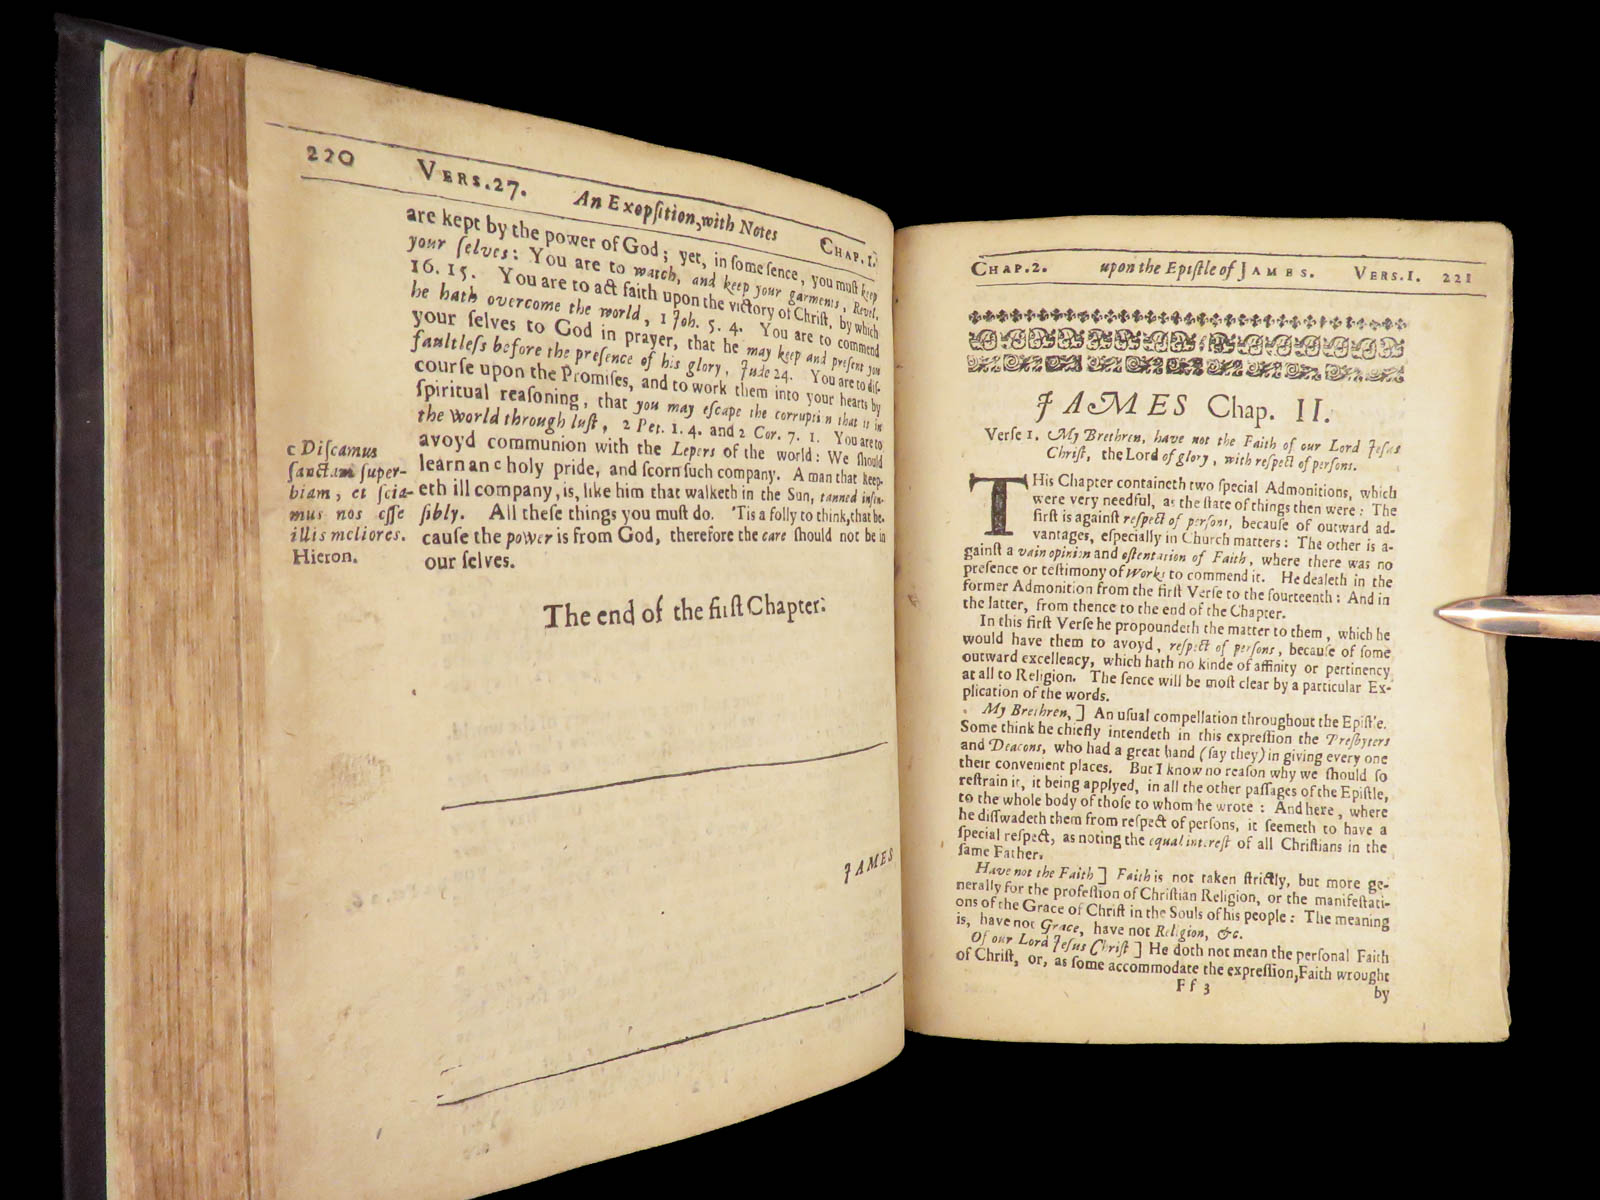 220 VERS.27. An Exopſition, with Notes CHAP.1.
are kept by the power of God; yet, in ſome ſence, you muſt keep
your ſelves: You are to watch, and keep your garments, Revel.
16. 15. You are to act faith upon the victory of Chriſt, by which
he hath overcome the world, 1 Joh. 5. 4. You are to commend
your ſelves to God in prayer, that he may keep and preſent you
faultleſs before the preſence of his glory, Jude 24. You are to diſ-
courſe upon the Promiſes, and to work them into your hearts by
ſpiritual reaſoning, that you may eſcape the corruption that is in
the World through luſt, 2 Pet. 1. 4. and 2 Cor. 7. 1. You are to
avoyd communion with the Lepers of the world: We ſhould
learn an c holy pride, and ſcorn ſuch company. A man that keep-
eth ill company, is, like him that walketh in the Sun, tanned inſen-
ſibly. All theſe things you muſt do. 'Tis a folly to think, that be-
cauſe the power is from God, therefore the care ſhould not be in
our ſelves.
c Diſcamus
ſanctam ſuper-
biam, et ſcia-
mus nos eſſe
illis meliores.
Hieron.
The end of the firſt Chapter.
JAMES
CHAP.2. upon the Epiſtle of JAMES. VERS.1. 221
JAMES Chap. II.
Verſe 1. My Brethren, have not the Faith of our Lord Jeſus
Chriſt, the Lord of glory, with reſpect of perſons.
THis Chapter containeth two ſpecial Admonitions, which
were very needful, as the ſtate of things then were: The
firſt is againſt reſpect of perſons, becauſe of outward ad-
vantages, eſpecially in Church matters: The other is a-
gainſt a vain opinion and oſtentation of Faith, where there was no
preſence or teſtimony of Works to commend it. He dealeth in the
former Admonition from the firſt Verſe to the fourteenth: And in
the latter, from thence to the end of the Chapter.
In this firſt Verſe he propoundeth the matter to them, which he
would have them to avoyd, reſpect of perſons, becauſe of ſome
outward excellency, which hath no kinde of affinity or pertinency
at all to Religion. The ſence will be moſt clear by a particular Ex-
plication of the words.
My Brethren,] An uſual compellation throughout the Epiſtle.
Some think he chiefly intendeth in this expreſſion the Presbyters
and Deacons, who had a great hand (ſay they) in giving every one
their convenient places. But I know no reaſon why we ſhould ſo
reſtrain it, it being applyed, in all the other paſſages of the Epiſtle,
to the whole body of thoſe to whom he wrote: And here, where
he diſſwadeth them from reſpect of perſons, it ſeemeth to have a
ſpecial reſpect, as noting the equal intereſt of all Chriſtians in the
ſame Father.
Have not the Faith] Faith is not taken ſtrictly, but more ge-
nerally for the profeſſion of Chriſtian Religion, or the manifeſtati-
ons of the Grace of Chriſt in the Souls of his people: The meaning
is, have not Grace, have not Religion, &c.
Of our Lord Jeſus Chriſt] He doth not mean the perſonal Faith
of Chriſt, or, as ſome accommodate the expreſſion, Faith wrought
Ff 3 by